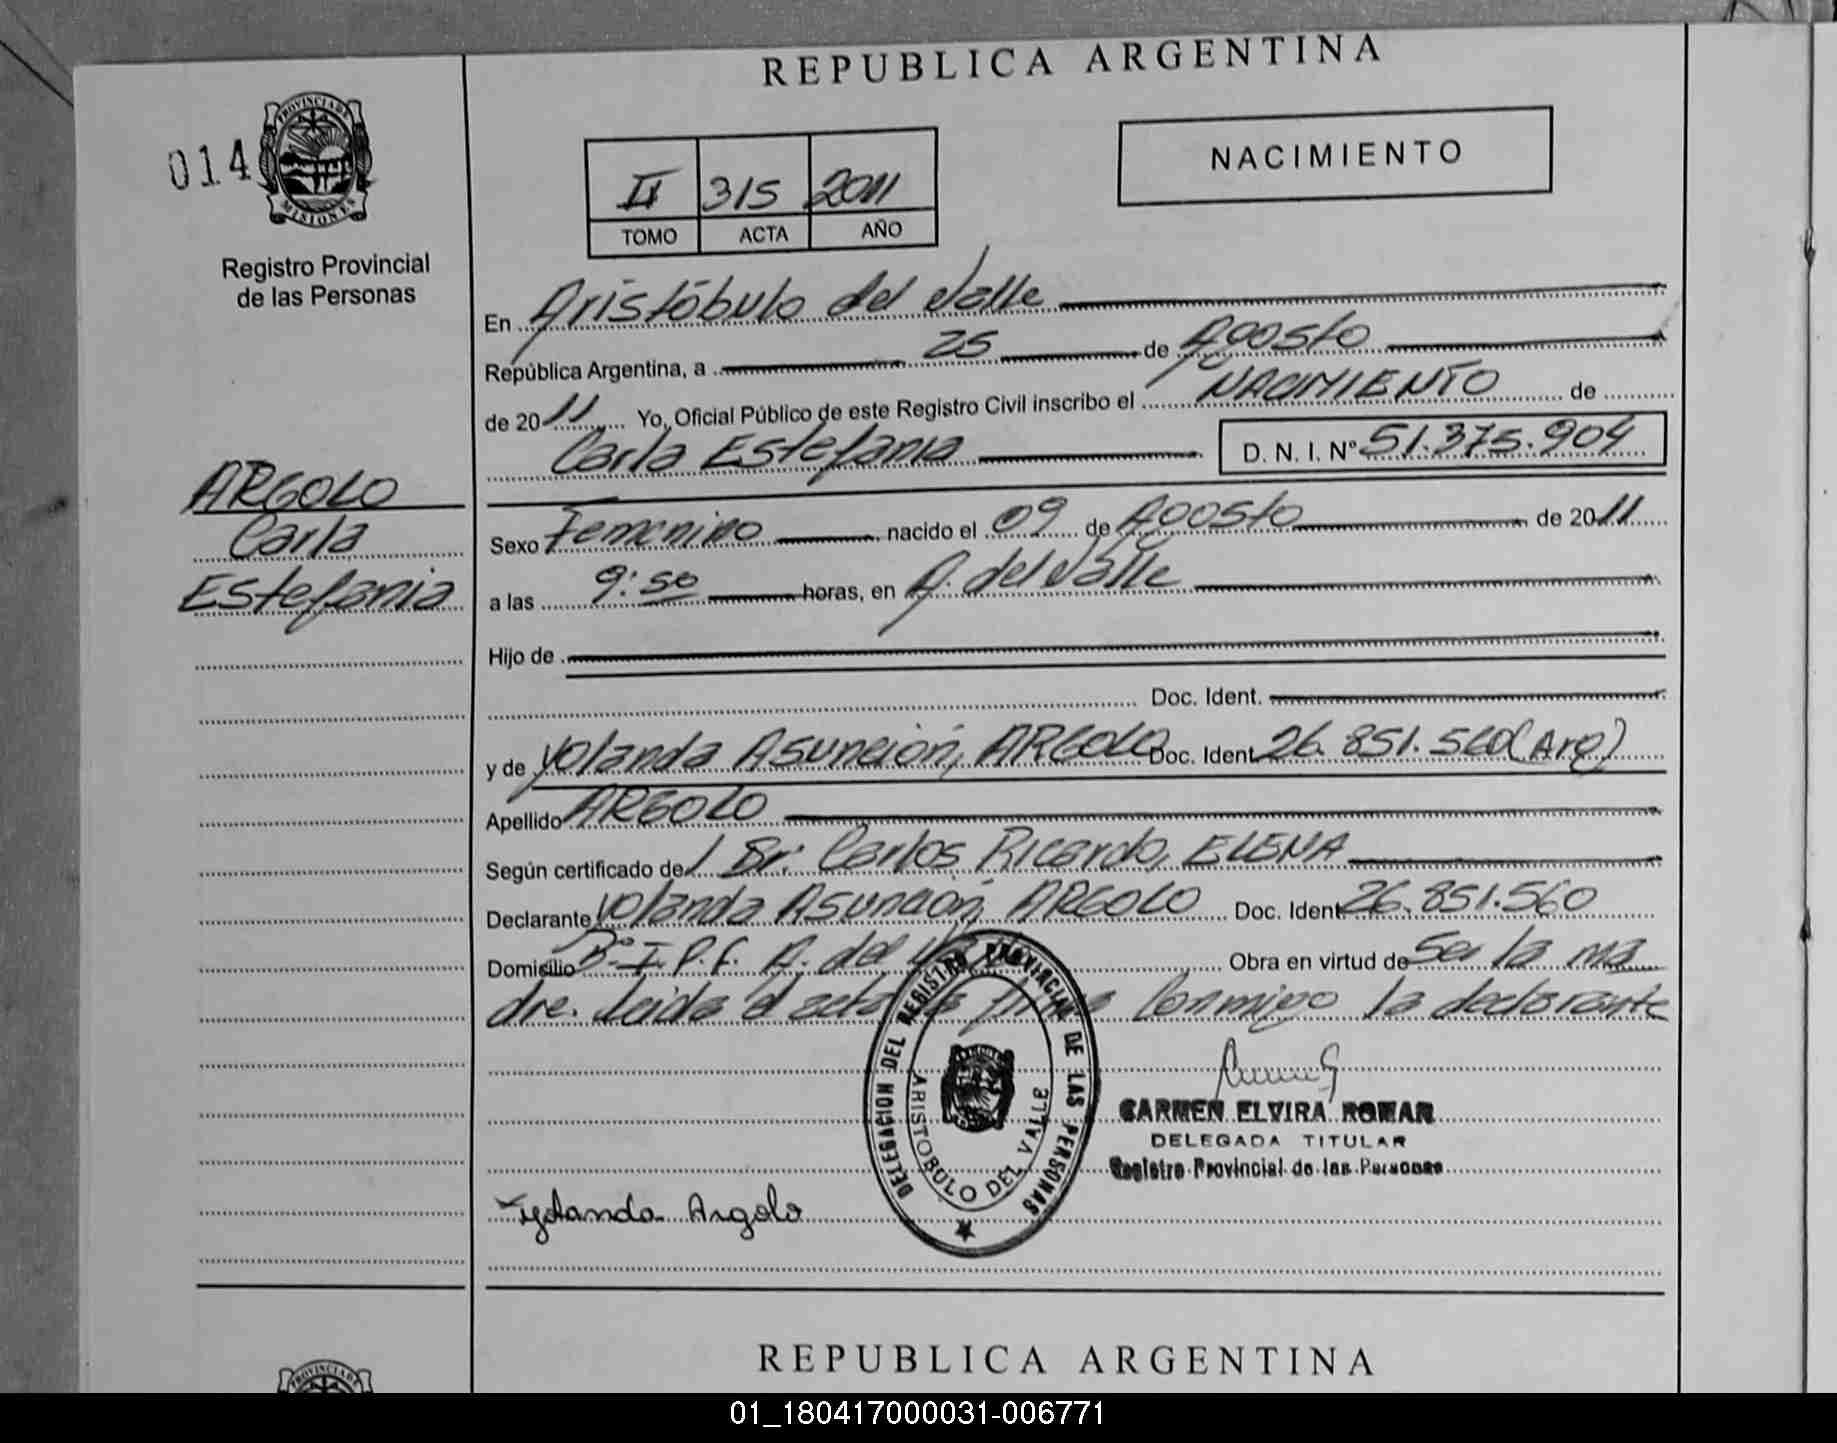 REPUBLICA ARGENTINA
014
PROVINCIA DE MISIONES
Registro Provincial
de las Personas
II 315 2011
TOMO ACTA AÑO
NACIMIENTO
En Aristóbulo del Valle
República Argentina, a 25 de Agosto
de 2011 Yo, Oficial Público de este Registro Civil inscribo el NACIMIENTO de
Carla Estefania D. N. I. Nº 51.375.904
ARGOLO
Carla
Estefania
Sexo Femenino nacido el 09 de Agosto de 2011
a las 9:50 horas, en A. del Valle
Hijo de
Doc. Ident.
y de Yolanda Asunción, ARGOLO Doc. Ident 26.851.560 (Arg)
Apellido ARGOLO
Según certificado de/ Dr. Carlos Ricardo, ELENA
Declarante Yolanda Asunción, ARGOLO Doc. Ident 26.851.560
Domicilio Bº I.P.F. A. del Obra en virtud de Ser la ma
dre. Leida el acta la firma Conmigo la declarante
DELEGACION DEL REGISTRO PROVINCIAL DE LAS PERSONAS
ARISTOBULO DEL VALLE
CARMEN ELVIRA ROMAN
DELEGADA TITULAR
Registro Provincial de las Personas
Yolanda Argolo
REPUBLICA ARGENTINA
PROVINCIA DE
01_180417000031-006771